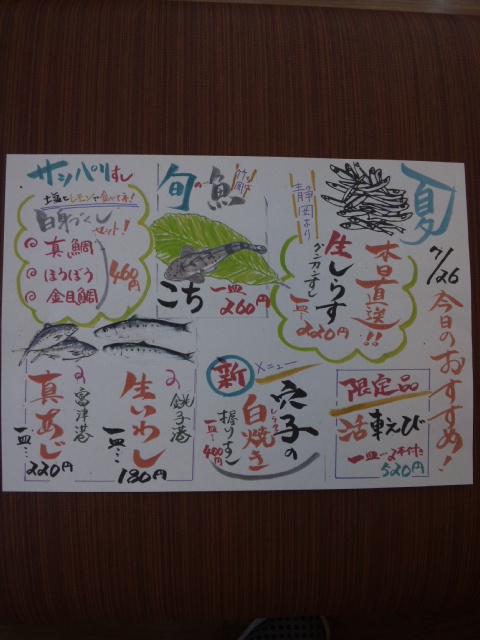 夏
7/26 今日のおすすめ!
静岡より
本日直送!!
生しらす
グンカンすし
一皿… 220円
旬の魚
こち
一皿… 260円
サッパリすし
土塩とレモンで食べて下さい!
白身づくし
セット!
真鯛
ほうぼう
金目鯛
460円
限定品
活車えび
一皿…2本付き
520円
新メニュー
穴子の
白焼き
握りすし
一皿… 400円
銚子港
生いわし
一皿… 180円
富津港
真あじ
一皿… 220円